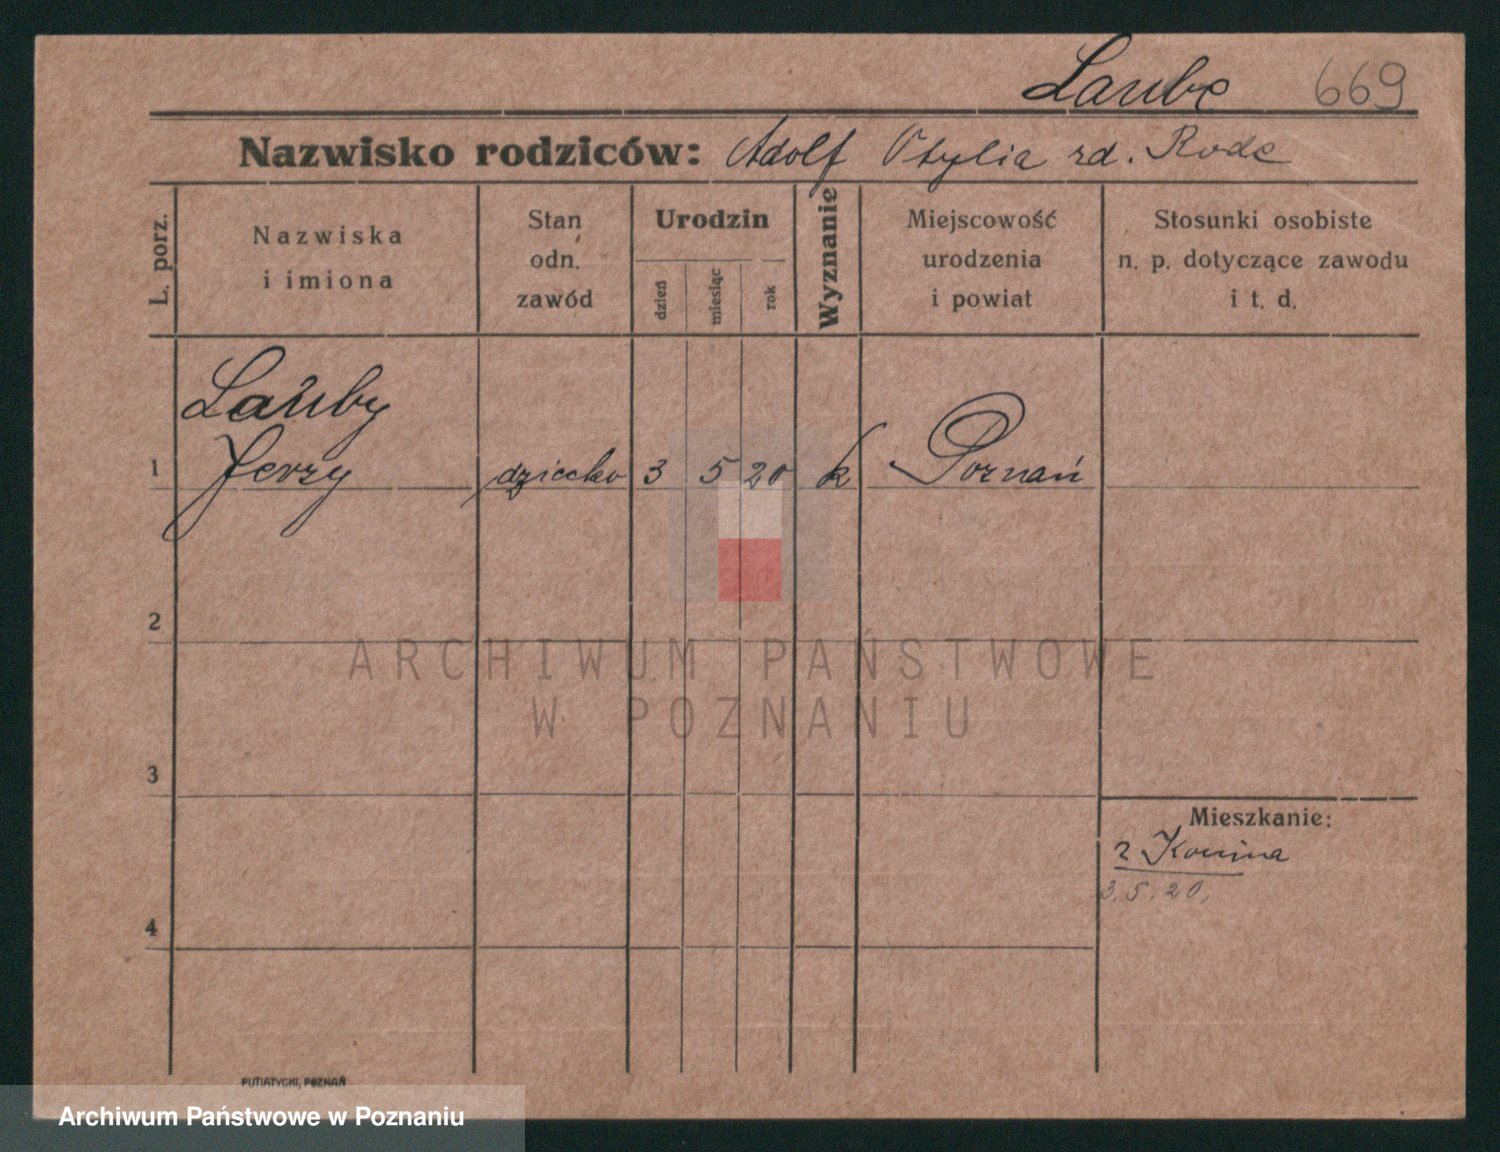 Laube 669
Nazwisko rodziców: Adolf Otylia zd. Rode
L. porz.
Nazwiska
i imiona
Stan
odn.
zawód
Urodzin
dzień
miesiąc
rok
Wyznanie
Miejscowość
urodzenia
i powiat
Stosunki osobiste
n. p. dotyczące zawodu
i t. d.
Lauby
1 Jerzy dziecko 3 5 20 k Poznań
2
3
4
Mieszkanie:
z Konina
3.5.20.
ARCHIWUM PAŃSTWOWE
W POZNANIU
PUTIATYCKI, POZNAŃ
Archiwum Państwowe w Poznaniu